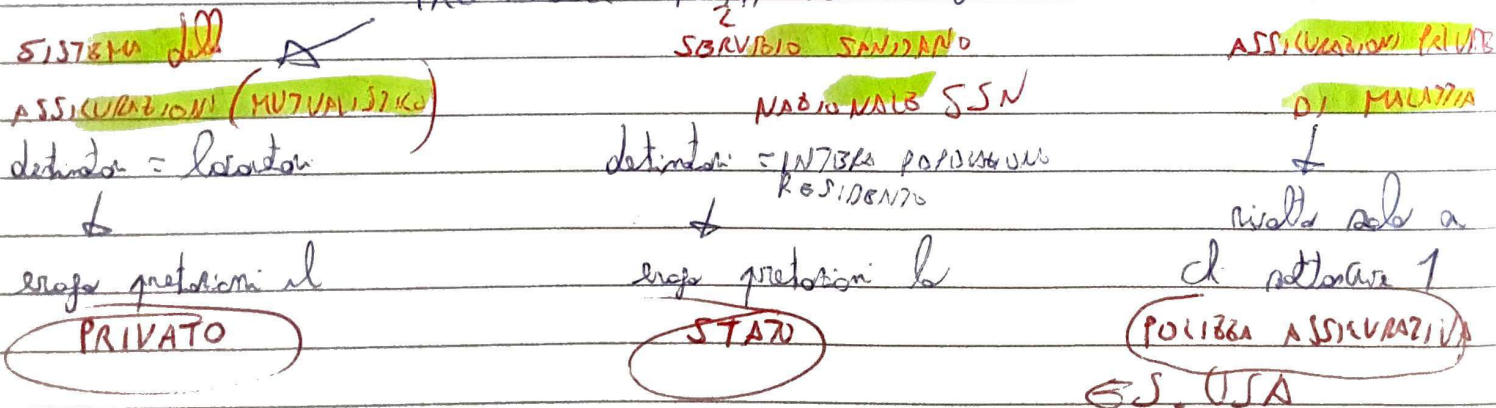 2
SISTEMA delle
ASSICURAZIONI (MUTUALISTICO)
destinatari = lavoratori
eroga prestazioni il
PRIVATO
SERVIZIO SANITARIO
NAZIONALE SSN
destinatari = INTERA POPOLAZIONE
RESIDENTE
eroga prestazioni lo
STATO
ASSICURAZIONI PRIVATE
DI MALATTIA
rivolto solo a
chi sottoscrive 1
POLIZZA ASSICURATIVA
ES. USA